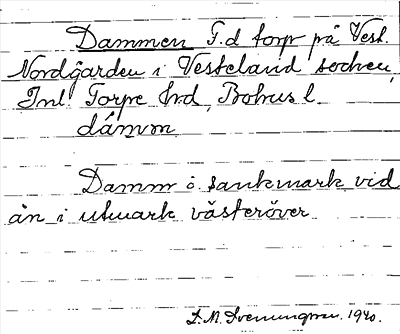 Dammen F.d torp på Vest.
Nordgården i Vesteland socken,
Inl. Torpe hrd, Bohus l.
dámm
Damm o. sankmark vid
ån i utmark västeröver.
S. M. Svenungsson. 1940.